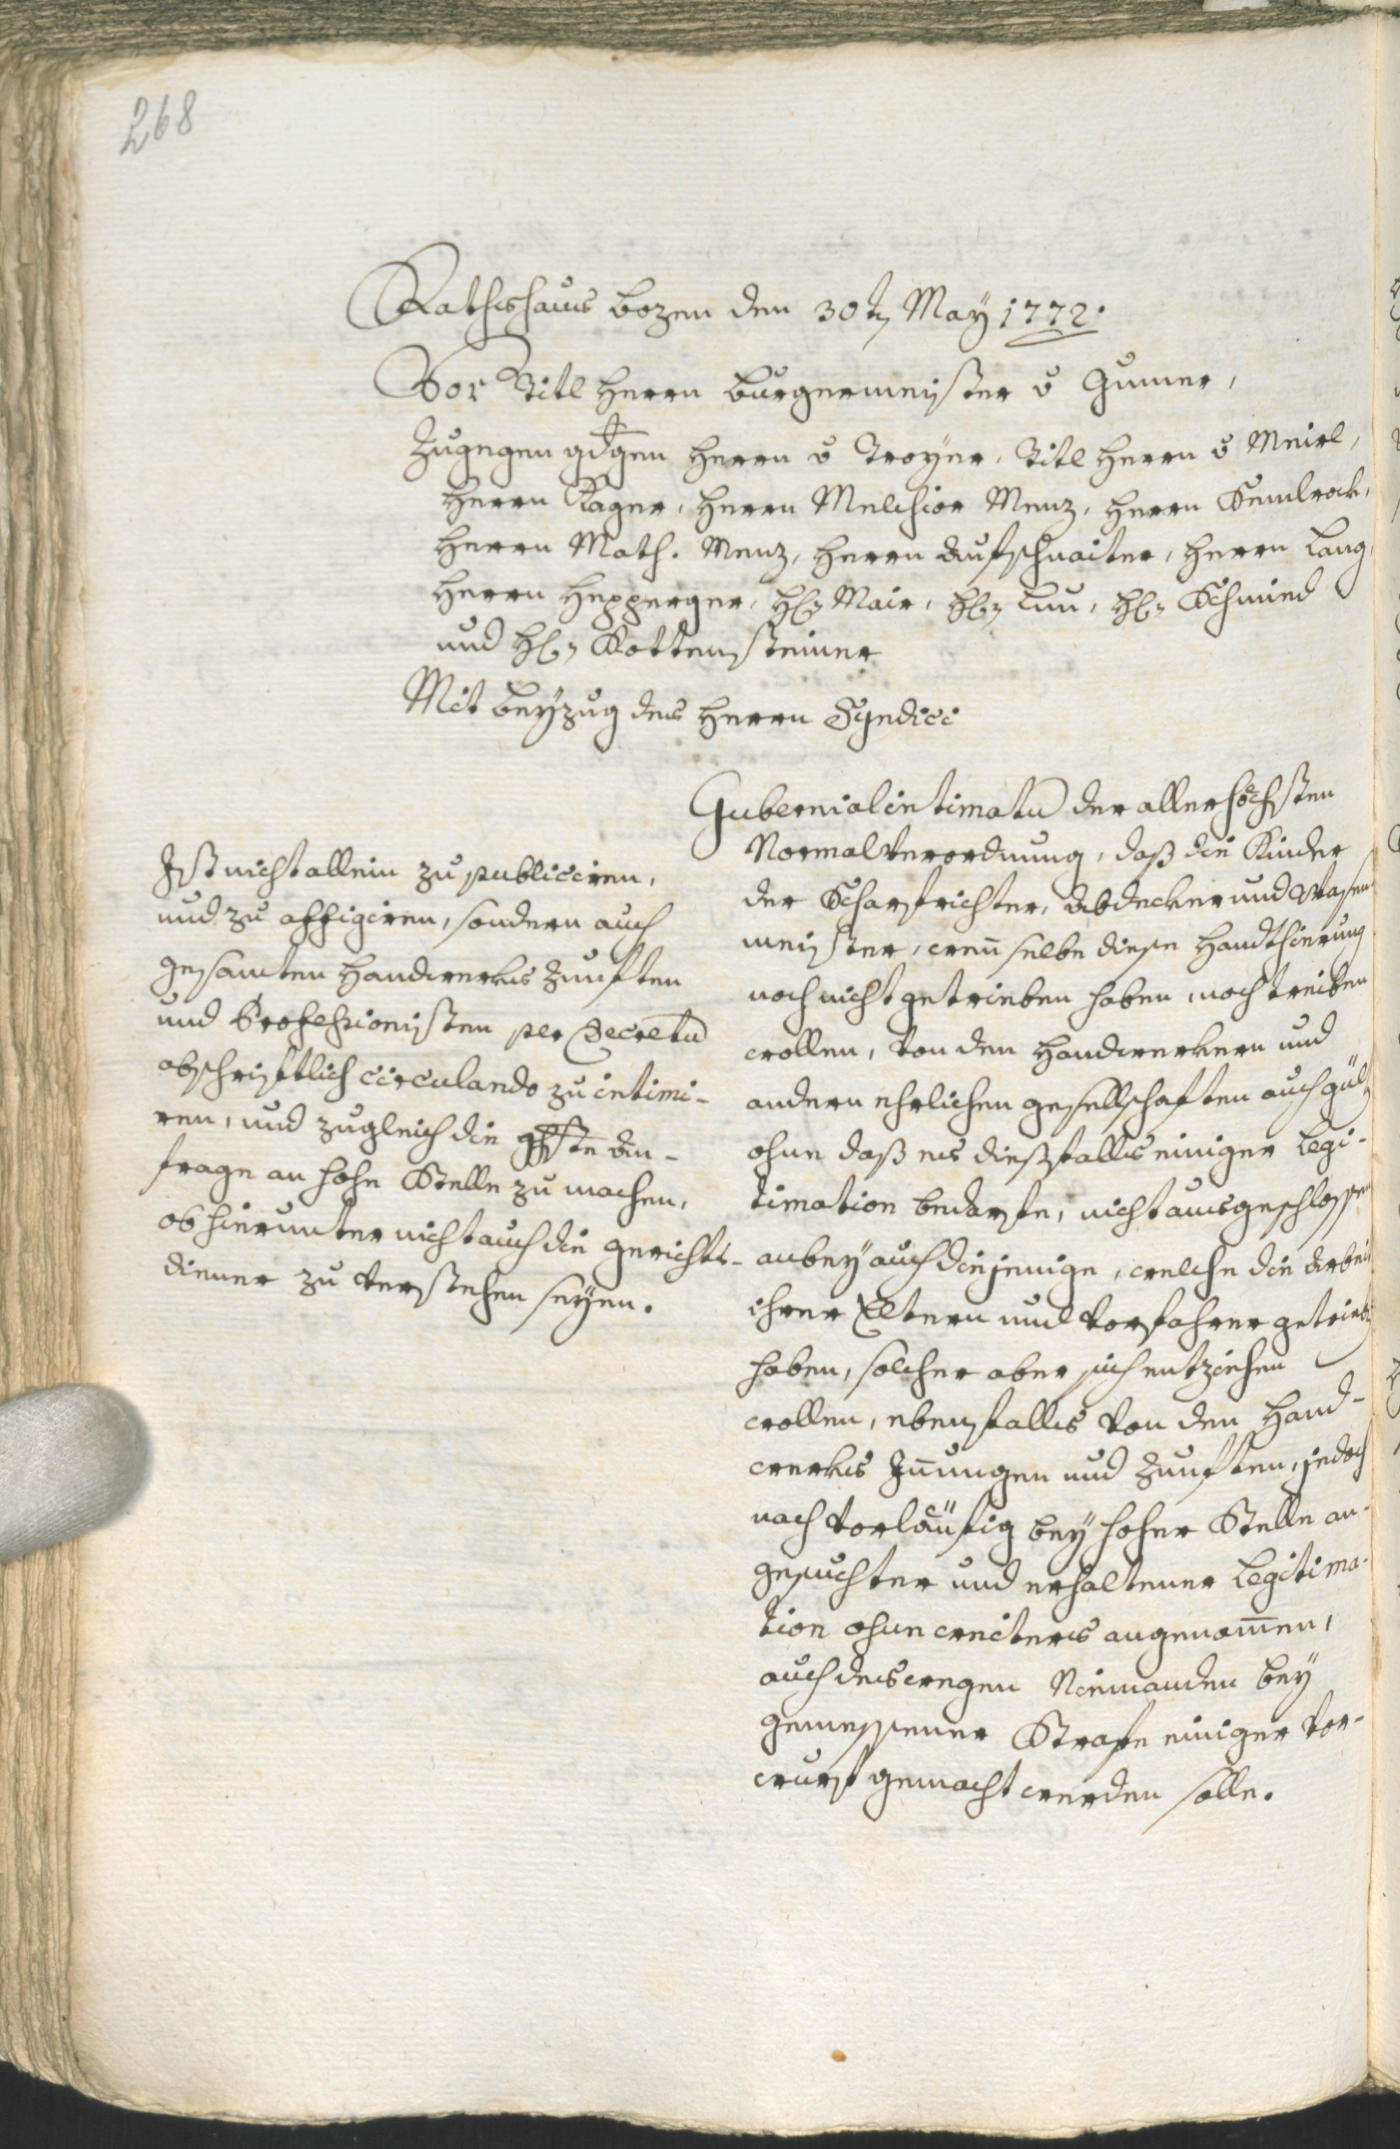 268
Rathshaus Bozen den 30t. May 1772.
Vor Titl Herrn Burgermeister v Gumer,
Zugegen Herrn v Troyer, Titl Herrn v Meirl,
Herrn Rager, Herrn Melchior Menz, Herrn Semlrock,
Herrn Math. Menz, Herrn Aufschnaiter, Herrn Lang,
Herrn Hepperger, H. Mair, H. Lun, H. Schmied
und H. Kottensteiner
Mit Beyzug des Herrn Syndici
Gubernialintimatu der allerhöchsten
Normalverordnung, daß die Kinder
der Scharfrichter, Abdecker und Wasen
meister, wenn selbe diese Handthierung
noch nicht getrieben haben, noch treiben
wollen, von den Handwerkern und
andern ehrlichen gesellschaften auch
ohne daß es dießfalls einiger Legi-
timation bedarfte, nicht ausgeschlossen
anbey auch diejenige, welche die Arbeit
ihrer Eltern und Vorfahrer getrieb
haben, solcher aber sich entziehen
wollen, ebenfalls von den Hand-
werks Innungen und Zunften, jedoch
nach vorläufig bey hoher Stelle an-
gesuchter und erhaltener Legitima-
tion ohne weiters angenommen,
auch deswegen Niemanden bey
gemessener Strafe einiger Vor-
wurf gemacht werden solle.
Ist nicht allein zu publiciren,
und zu affigiren, sondern auch
gesamten Handwerks Zunften
und Professionisten per Decretu
abschriftlich circulando zu intimi-
ren, und zugleich die An-
frage an hohe Stelle zu machen,
ob hierunter nicht auch die gerichts-
diener zu verstehen seyen.